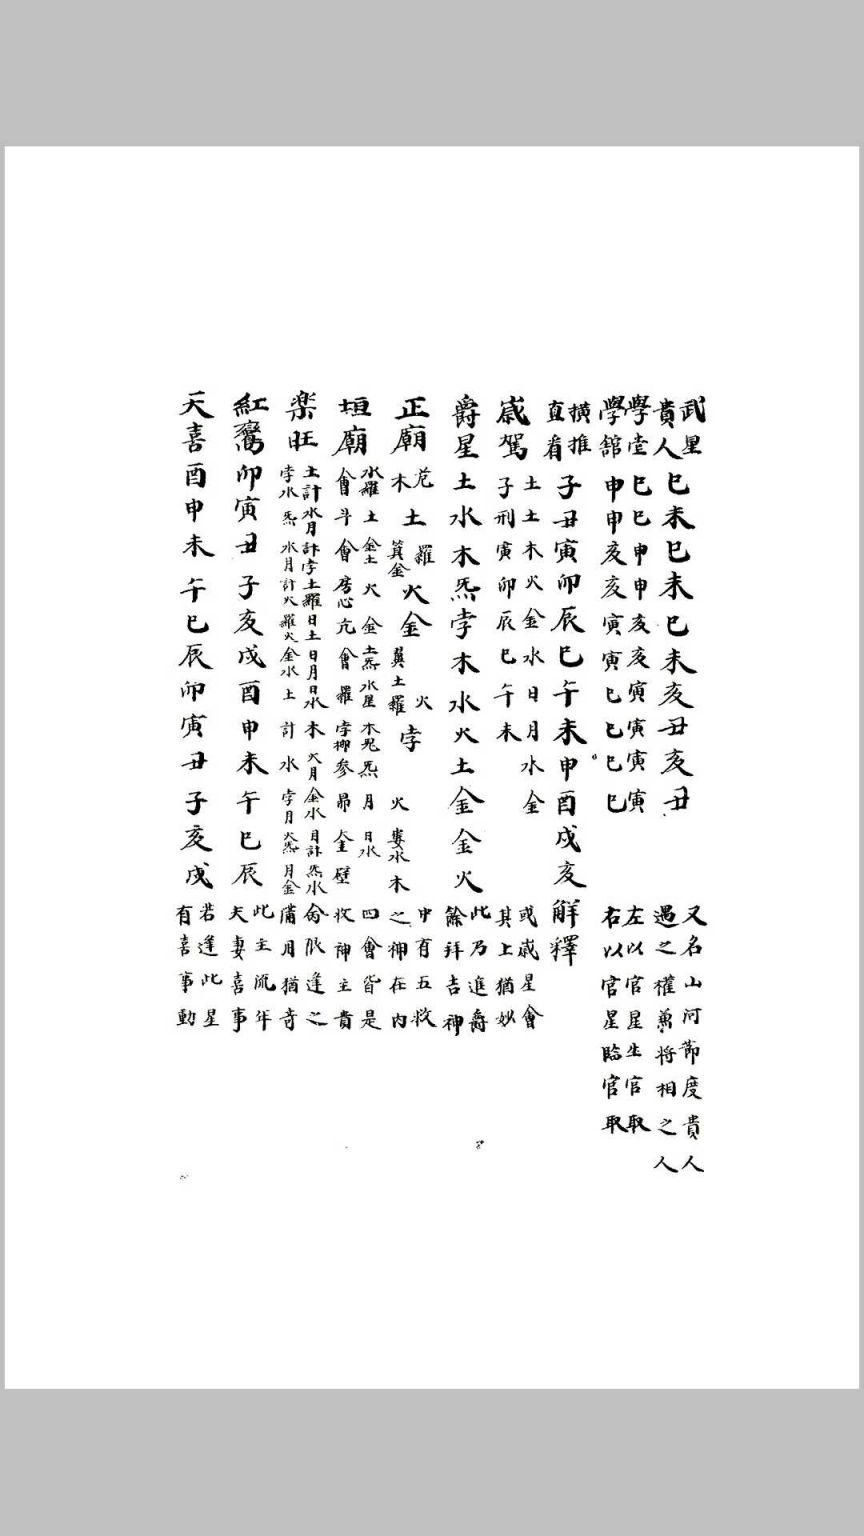 武星
貴人
巳未巳未巳未亥丑亥丑
又名山河節度貴人
遇之權萬將相之人
學堂巳巳申申亥亥寅寅寅寅
左以官星生官取
學館申申亥亥寅寅巳巳巳巳
右以官星臨官取
橫推
直看
子丑寅卯辰巳午未申酉戌亥
解釋
歲駕
土土木火金水日月水金
子刑寅卯辰巳午未
或歲星會
其上猶妙
爵星土水木炁孛木水火土金金火
此乃進爵
餘拜吉神
正廟
木土羅箕金火金翼土羅火孛火婁水木
中有五救
之神在內
垣廟
水羅土金土火金土炁水星木炁月日水
會斗會房心亢會羅孛柳參昴金壁
四會皆是
收神主貴
樂旺
土計水月計孛土羅日土日月日水木火月金水月計炁水
孛水炁水月計火羅火金水土計水孛月火炁月金
命限逢之
蒲月猶奇
紅鸞卯寅丑子亥戌酉申未午巳辰
此主流年
夫妻喜事
天喜酉申未午巳辰卯寅丑子亥戌
若逢此星
有喜事動